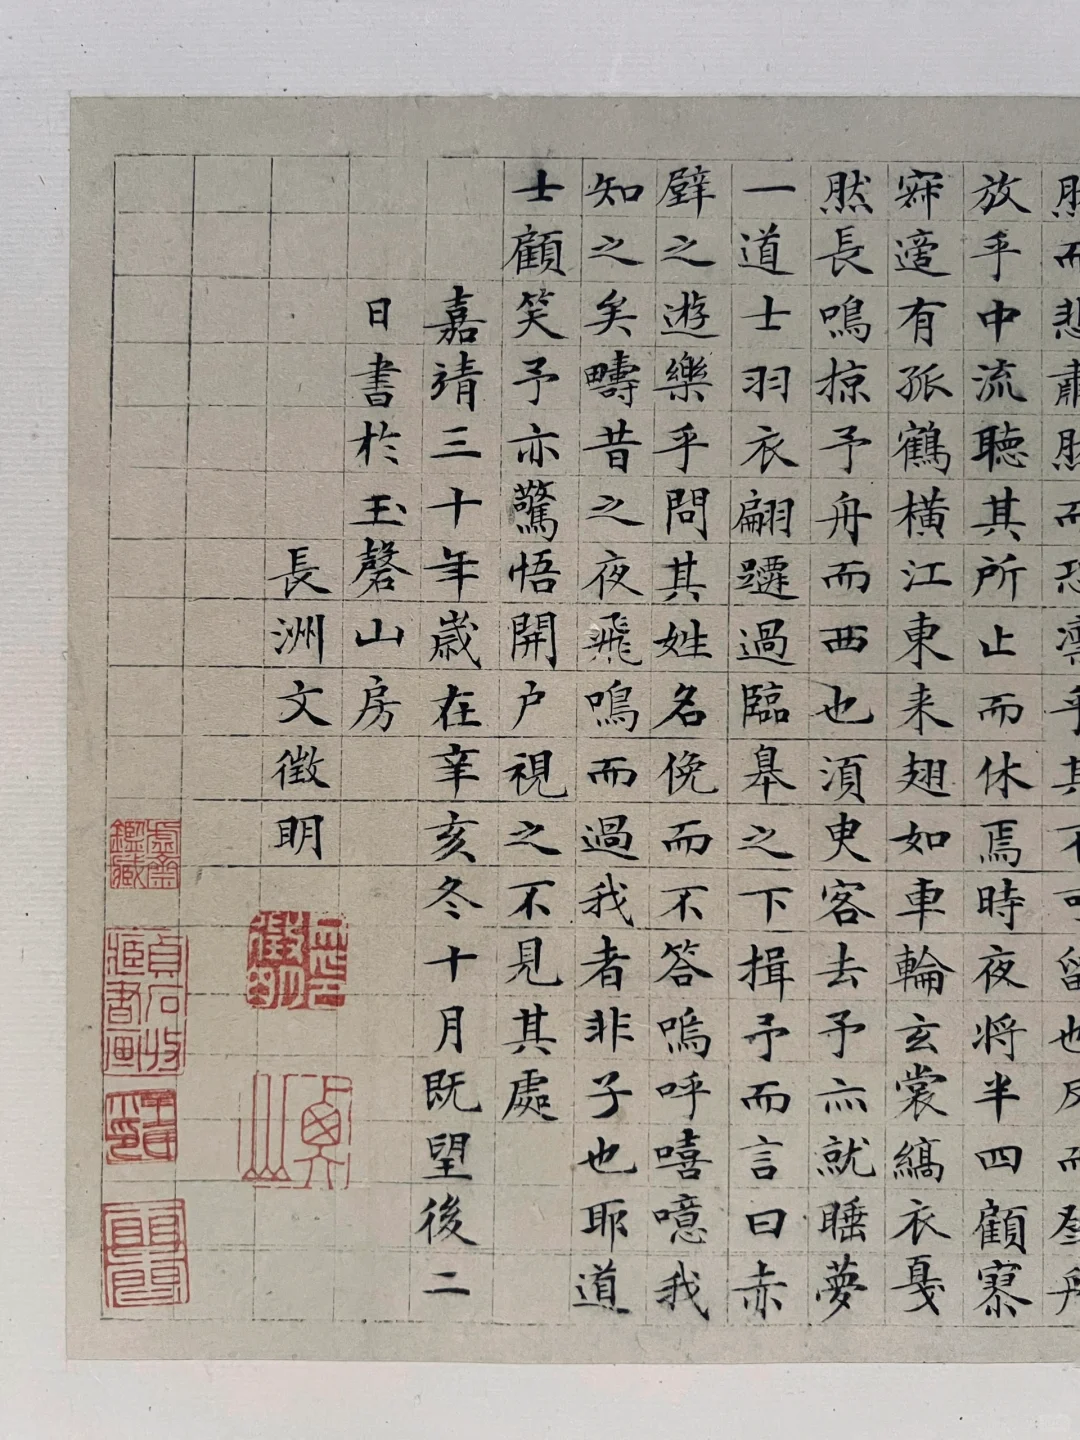 然而悲肅然而恐凜乎其不可留也反而登舟
放乎中流聽其所止而休焉時夜将半四顧寥
寂適有孤鶴橫江東来翅如車輪玄裳縞衣戛
然長鳴掠予舟而西也須臾客去予亦就睡夢
一道士羽衣翩躚過臨皋之下揖予而言曰赤
壁之遊樂乎問其姓名俛而不答嗚呼嘻噫我
知之矣疇昔之夜飛鳴而過我者非子也耶道
士顧笑予亦驚悟開户視之不見其處
嘉靖三十年歲在辛亥冬十月既望後二
日書於玉磬山房
長洲文徵明
徵明
虛齋鑑藏
貞石收藏書画